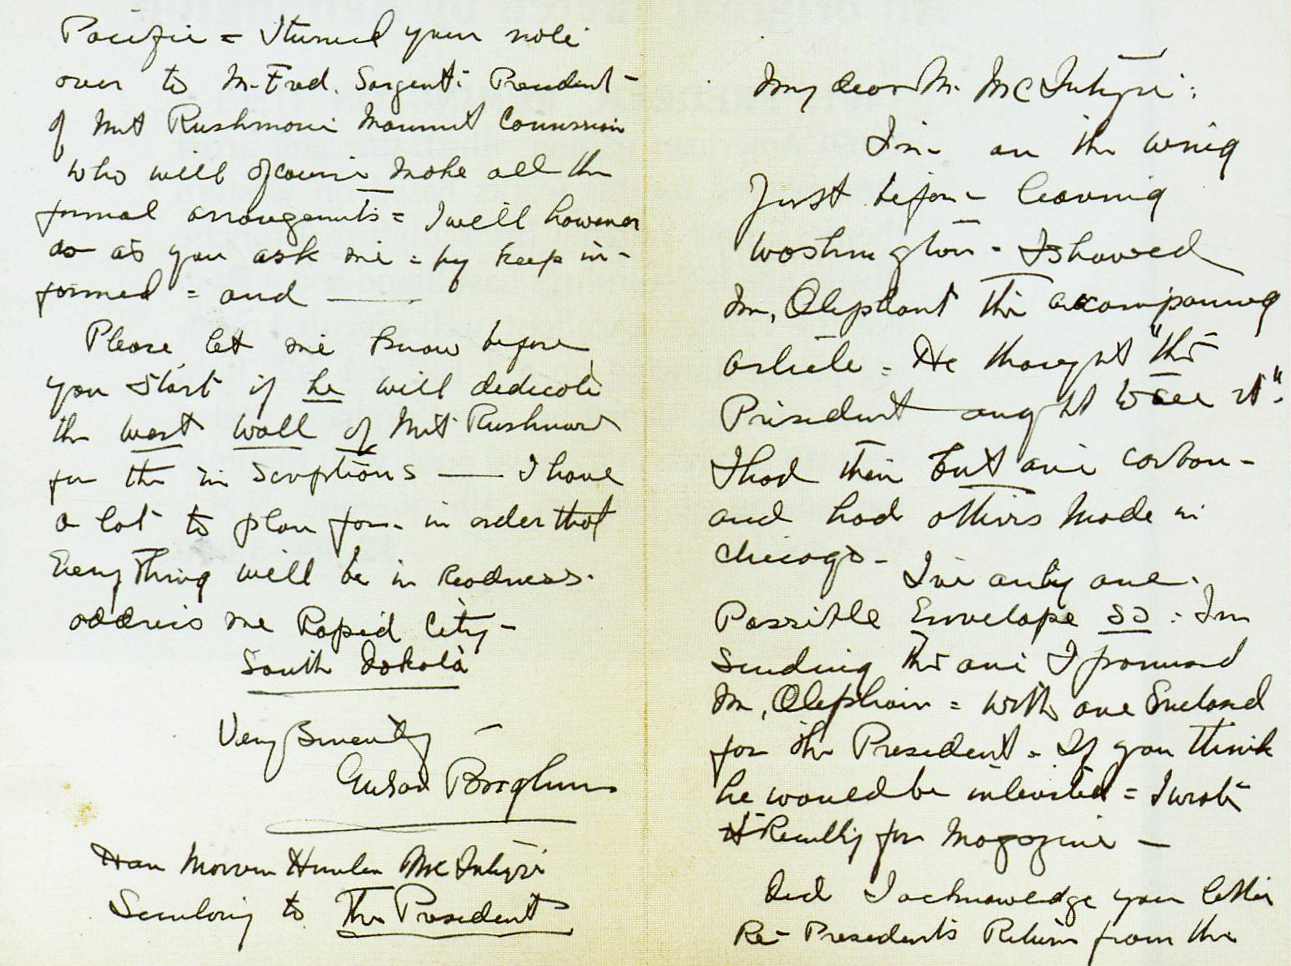 My dear Mr. McIntyre:
I'm on the wing
Just before leaving
Washington - I showed
Mr. Oliphant the accompanying
article = He thought "the
President ought to see it".
I had then but one carbon -
and had others made in
Chicago - I've only one
Possible Envelope so: I'm
sending the one I promised
Mr. Oliphant = with one Enclosed
for the President = If you think
he would be interested = I wrote
it Recently for Magazine —
Did I acknowledge your letter
Re- President's Return from the
Pacific = I turned your note
over to Mr Fred. Sargent: President
of Mt Rushmore Commission
who will of course make all the
formal arrangements = I will however
do as you ask me = by keep in-
formed = and ———
Please let me know before
you start if he will dedicate
the west wall of Mt Rushmore
for the inscriptions —— I have
a lot to plan for - in order that
Everything will be in Readness.
address me Rapid City -
South Dakota
Very Sincerely
Gutzon Borglum
Hon Marvin Hunter McIntyre
Secretary to The President